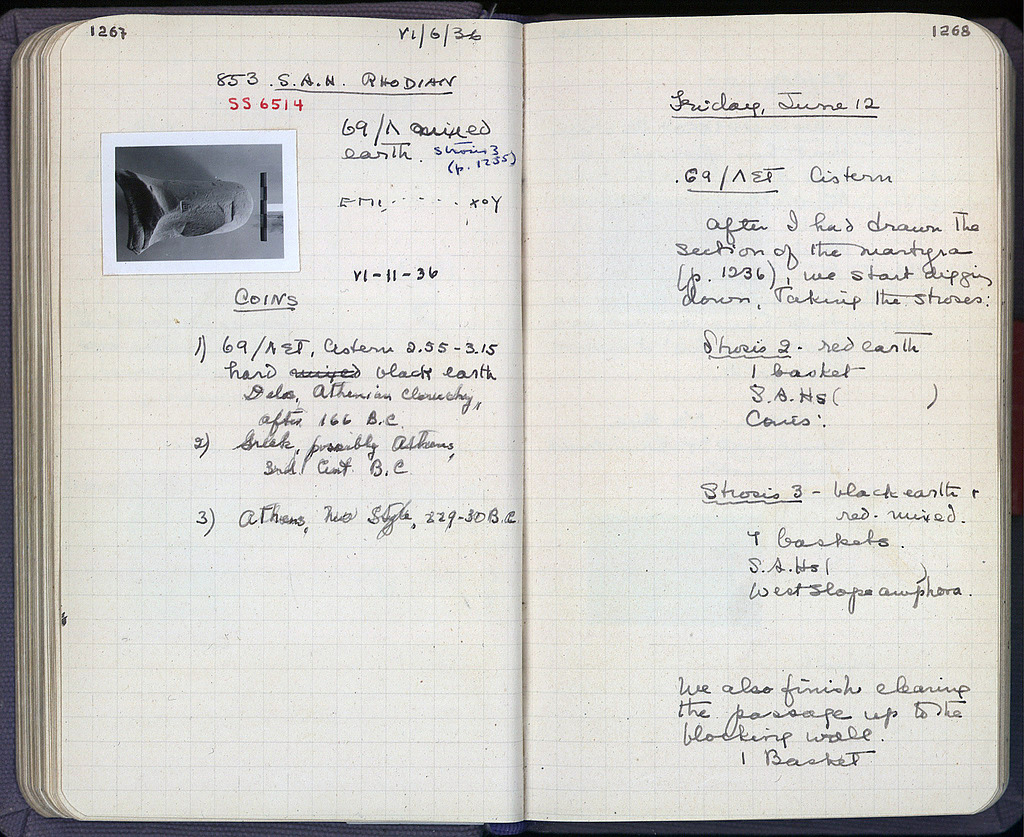 1267
VI/6/36
853. S.A.H. RHODIAN
SS 6514
69/Λ mixed
earth. Strosis 3
(p. 1235)
ΕΠΙ . . . . . ΧΟΥ
VI-11-36
COINS
1) 69/ΛΣΤ, Cistern 2.55-3.15
hard mixed black earth
Delos, Athenian cleruchy,
after 166 B.C.
2) Greek, possibly Athens,
3rd Cent. B.C
3) Athens, New Style, 229-30 B.C.
1268
Friday, June 12
.69/ΛΣΤ Cistern
After I had drawn the
section of the martyra
(p. 1236), we start digging
down, Taking the stroses:
Strosis 2 - red earth
1 basket
S.A.Hs ( )
Coins:
Strosis 3 - black earth +
red - mixed.
7 baskets.
S.A.Hs ( )
West Slope amphora.
We also finish clearing
the passage up to the
blocking wall.
1 Basket